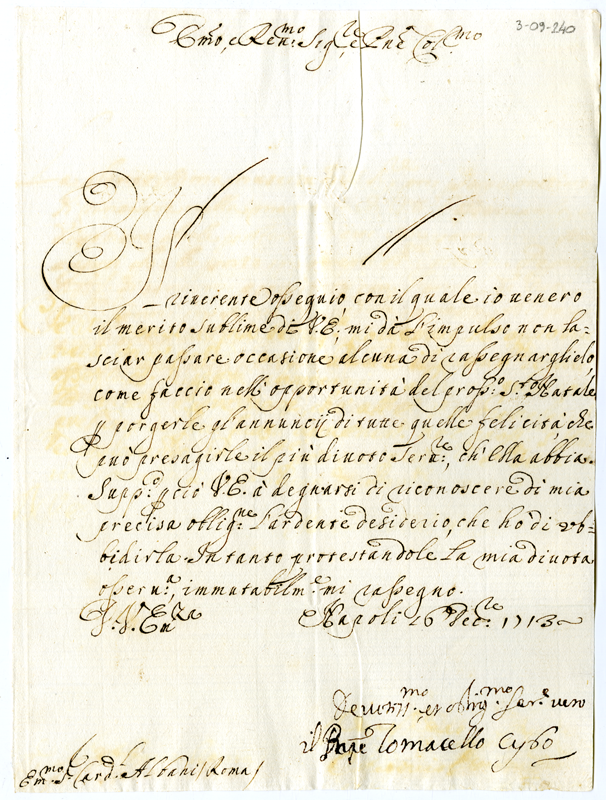 3-09-240
Em̃o, e Ren:mo Sig:re, e Pn̄e Col:mo
Il
riuerente ossequio, con il quale io uenero
il merito sublime di V.E., mi dà l'impulso non la-
sciar passare occasione alcuna di rassegnarglielo,
come faccio nell'opportunità del pros:o S:to Natale
p porgerle gl'annuncij di tutte quelle felicità, che
può presagirle il più diuoto Seru:re, ch'Ella abbia.
Supp:o pciò V.E. à degnarsi di riconoscere di mia
precisa oblig:ne l'ardente desiderio, che hò di vb-
bidirla. Intanto protestandole la mia diuota
osseru:a, immutabilm:e mi rassegno.
D. V. Em:za Napoli 16 Dec:re 1713
Deuotis:mo et oblig:mo Ser:e uero
il Pn̄pe Tomacello Cybo
Em:mo S:r Card: Albani (Roma)